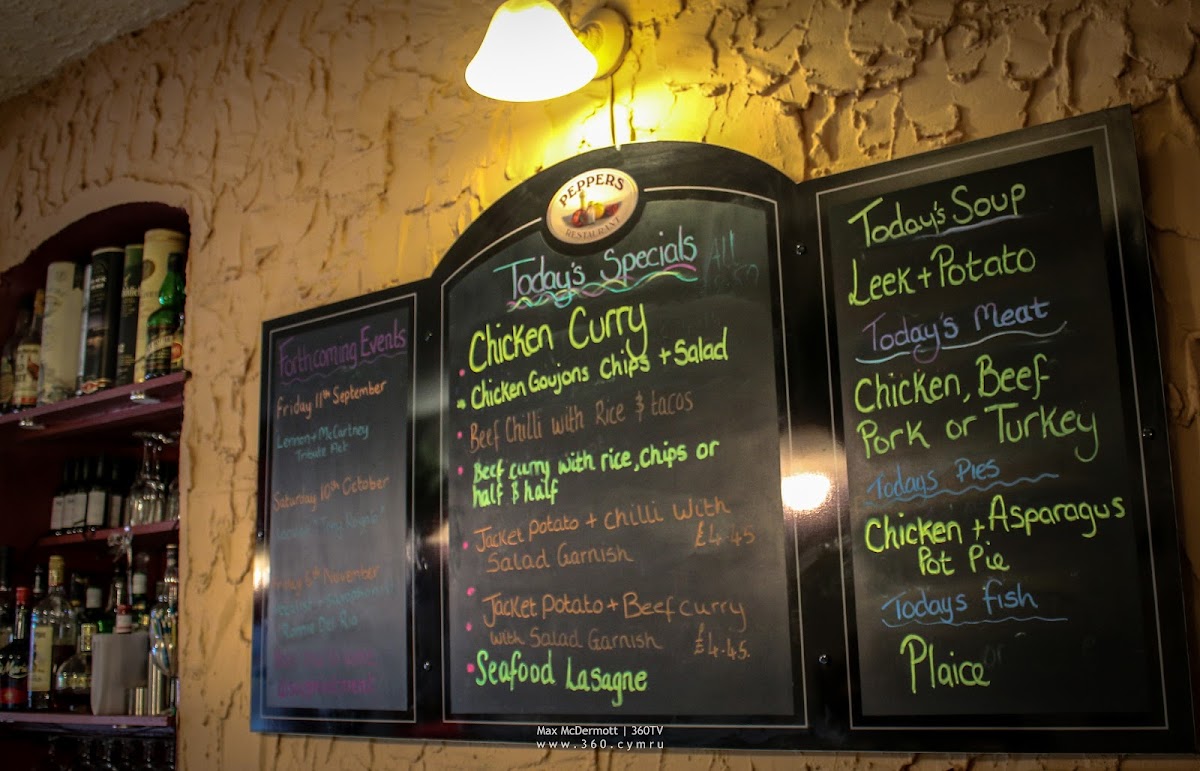 PEPPERS
RESTAURANT
Forthcoming Events
Friday 11th September
Lennon + McCartney
Tribute Act
Saturday 10th October
6th November
Ronnie Del Rio
Today's Specials
ALL
Chicken Curry
Chicken Goujons Chips + Salad
Beef Chilli with Rice & tacos
Beef curry with rice, chips or
half & half
Jacket potato + chilli with
Salad Garnish £4.45
Jacket potato + Beef curry
with Salad Garnish £4.45.
Seafood Lasagne
Today's Soup
Leek + Potato
Today's Meat
Chicken, Beef
Pork or Turkey
Todays Pies
Chicken + Asparagus
Pot Pie
Todays fish
Plaice or
Max McDermott | 360TV
www.360.cymru